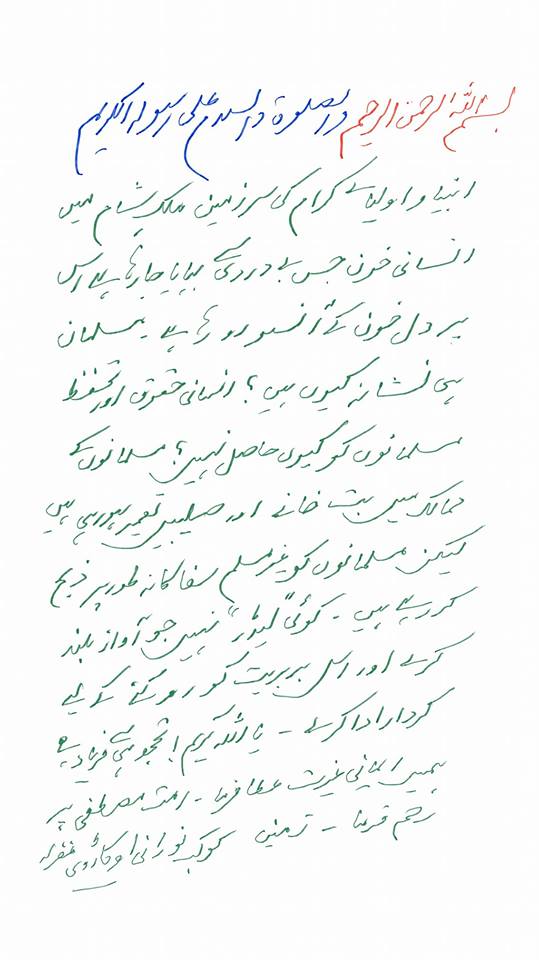 بسم اللہ الرحمن الرحیم والصلوۃ والسلام علی رسولہ الکریم
انبیا و اولیائے کرام کی سرزمین ملکِ شام میں
انسانی خون جس بے دردی سے بہایا جا رہا ہے اس
پر دل خون کے آنسو رو رہا ہے ۔ مسلمان
ہی نشانہ کیوں ہیں ؟ انسانی حقوق اور تحفظ
مسلمانوں کو کیوں حاصل نہیں ؟ مسلمانوں کے
ممالک میں بت خانے اور صلیبیں تعمیر ہو رہی ہیں
لیکن مسلمانوں کو غیر مسلم سفاکانہ طور پر ذبح
کر رہے ہیں ۔ کوئی "لیڈر" نہیں جو آواز بلند
کرے اور اس بربریت کو روکنے کے لیے
کردار ادا کرے ۔ یا اللہ کریم ! تجھ ہی سے فریاد ہے
ہمیں ایمانی غیرت عطا فرما ۔ امت مصطفی پر
رحم فرما ۔ آمین کوکب نورانی اوکاڑوی غفرلہ